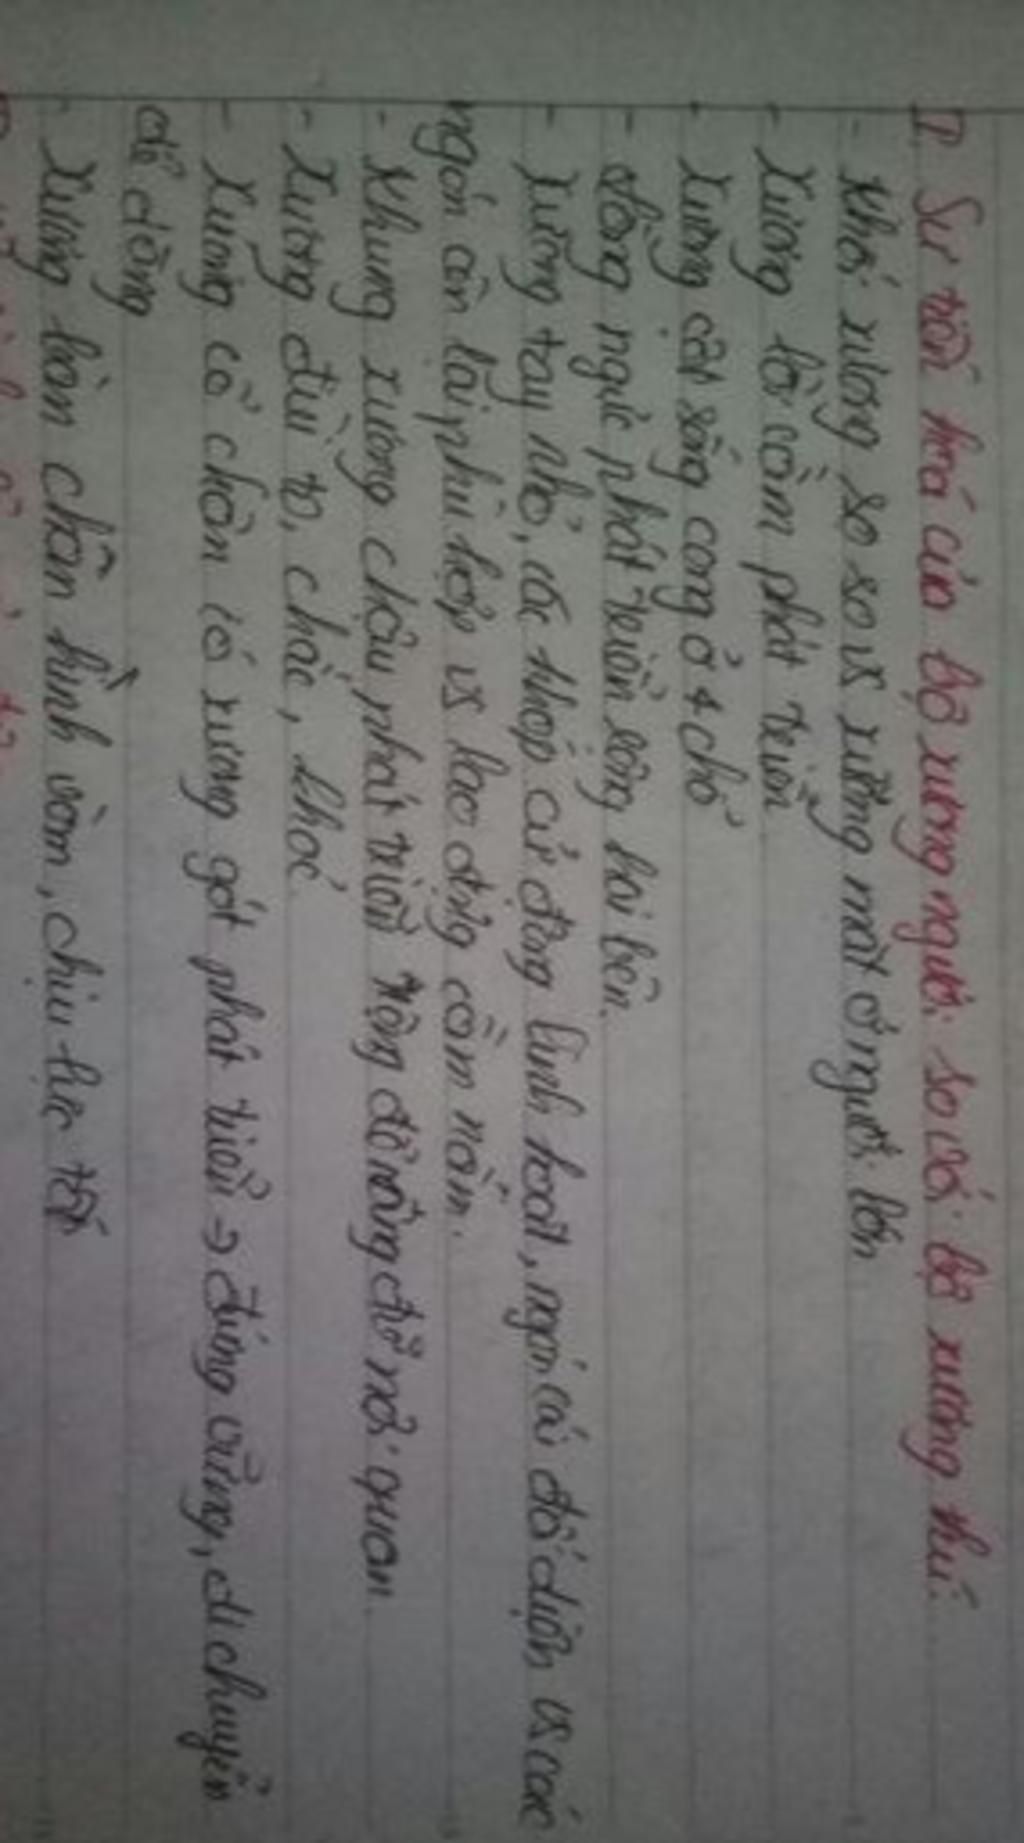 I. Sự tiến hoá của bộ xương người so với bộ xương thú.
- Khối xương sọ so vs xương mặt ở người lớn
- Xương lồi cằm phát triển
- Xương cột sống cong ở 4 chỗ
- Lồng ngực phát triển sang hai bên.
- Xương tay nhỏ, các khớp cử động linh hoạt, ngón cái đối diện vs các
ngón còn lại phù hợp vs lao động cầm nắm.
- Khung xương chậu phát triển rộng để nâng đỡ nội quan.
- Xương đùi to, chắc, khoẻ
- Xương cổ chân có xương gót phát triển → đứng vững, di chuyển
dễ dàng
- Xương bàn chân hình vòm, chịu lực tốt